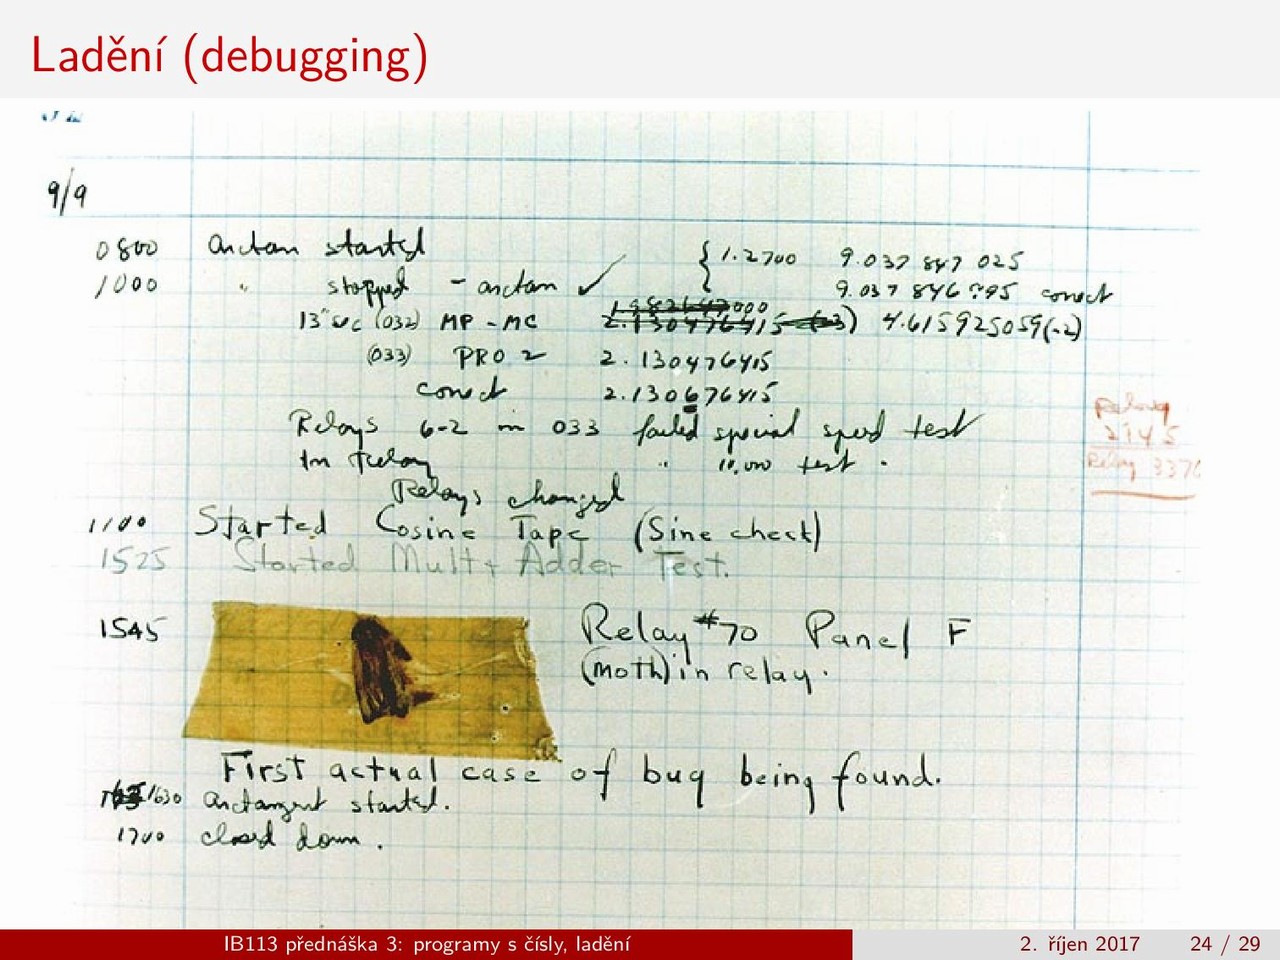 Ladění (debugging)
9/9
0800 arctan started { 1.2700 9.037 847 025
1000 " stopped - arctan ✓ 9.037 846 795 correct
13"uc (032) MP - MC 2.130476415 4.615925059(-2)
(033) PRO 2 2.130476415
correct 2.130676415
Relays 6-2 in 033 failed special speed test
In Relay " 11,000 test .
Relays changed
Relay
2145
Relay 3370
1100 Started Cosine Tape (Sine check)
1525 Started Mult + Adder Test.
1545 Relay #70 Panel F
(moth) in relay.
First actual case of bug being found.
1630 arctangent started.
1700 closed down .
IB113 přednáška 3: programy s čísly, ladění 2. říjen 2017 24 / 29